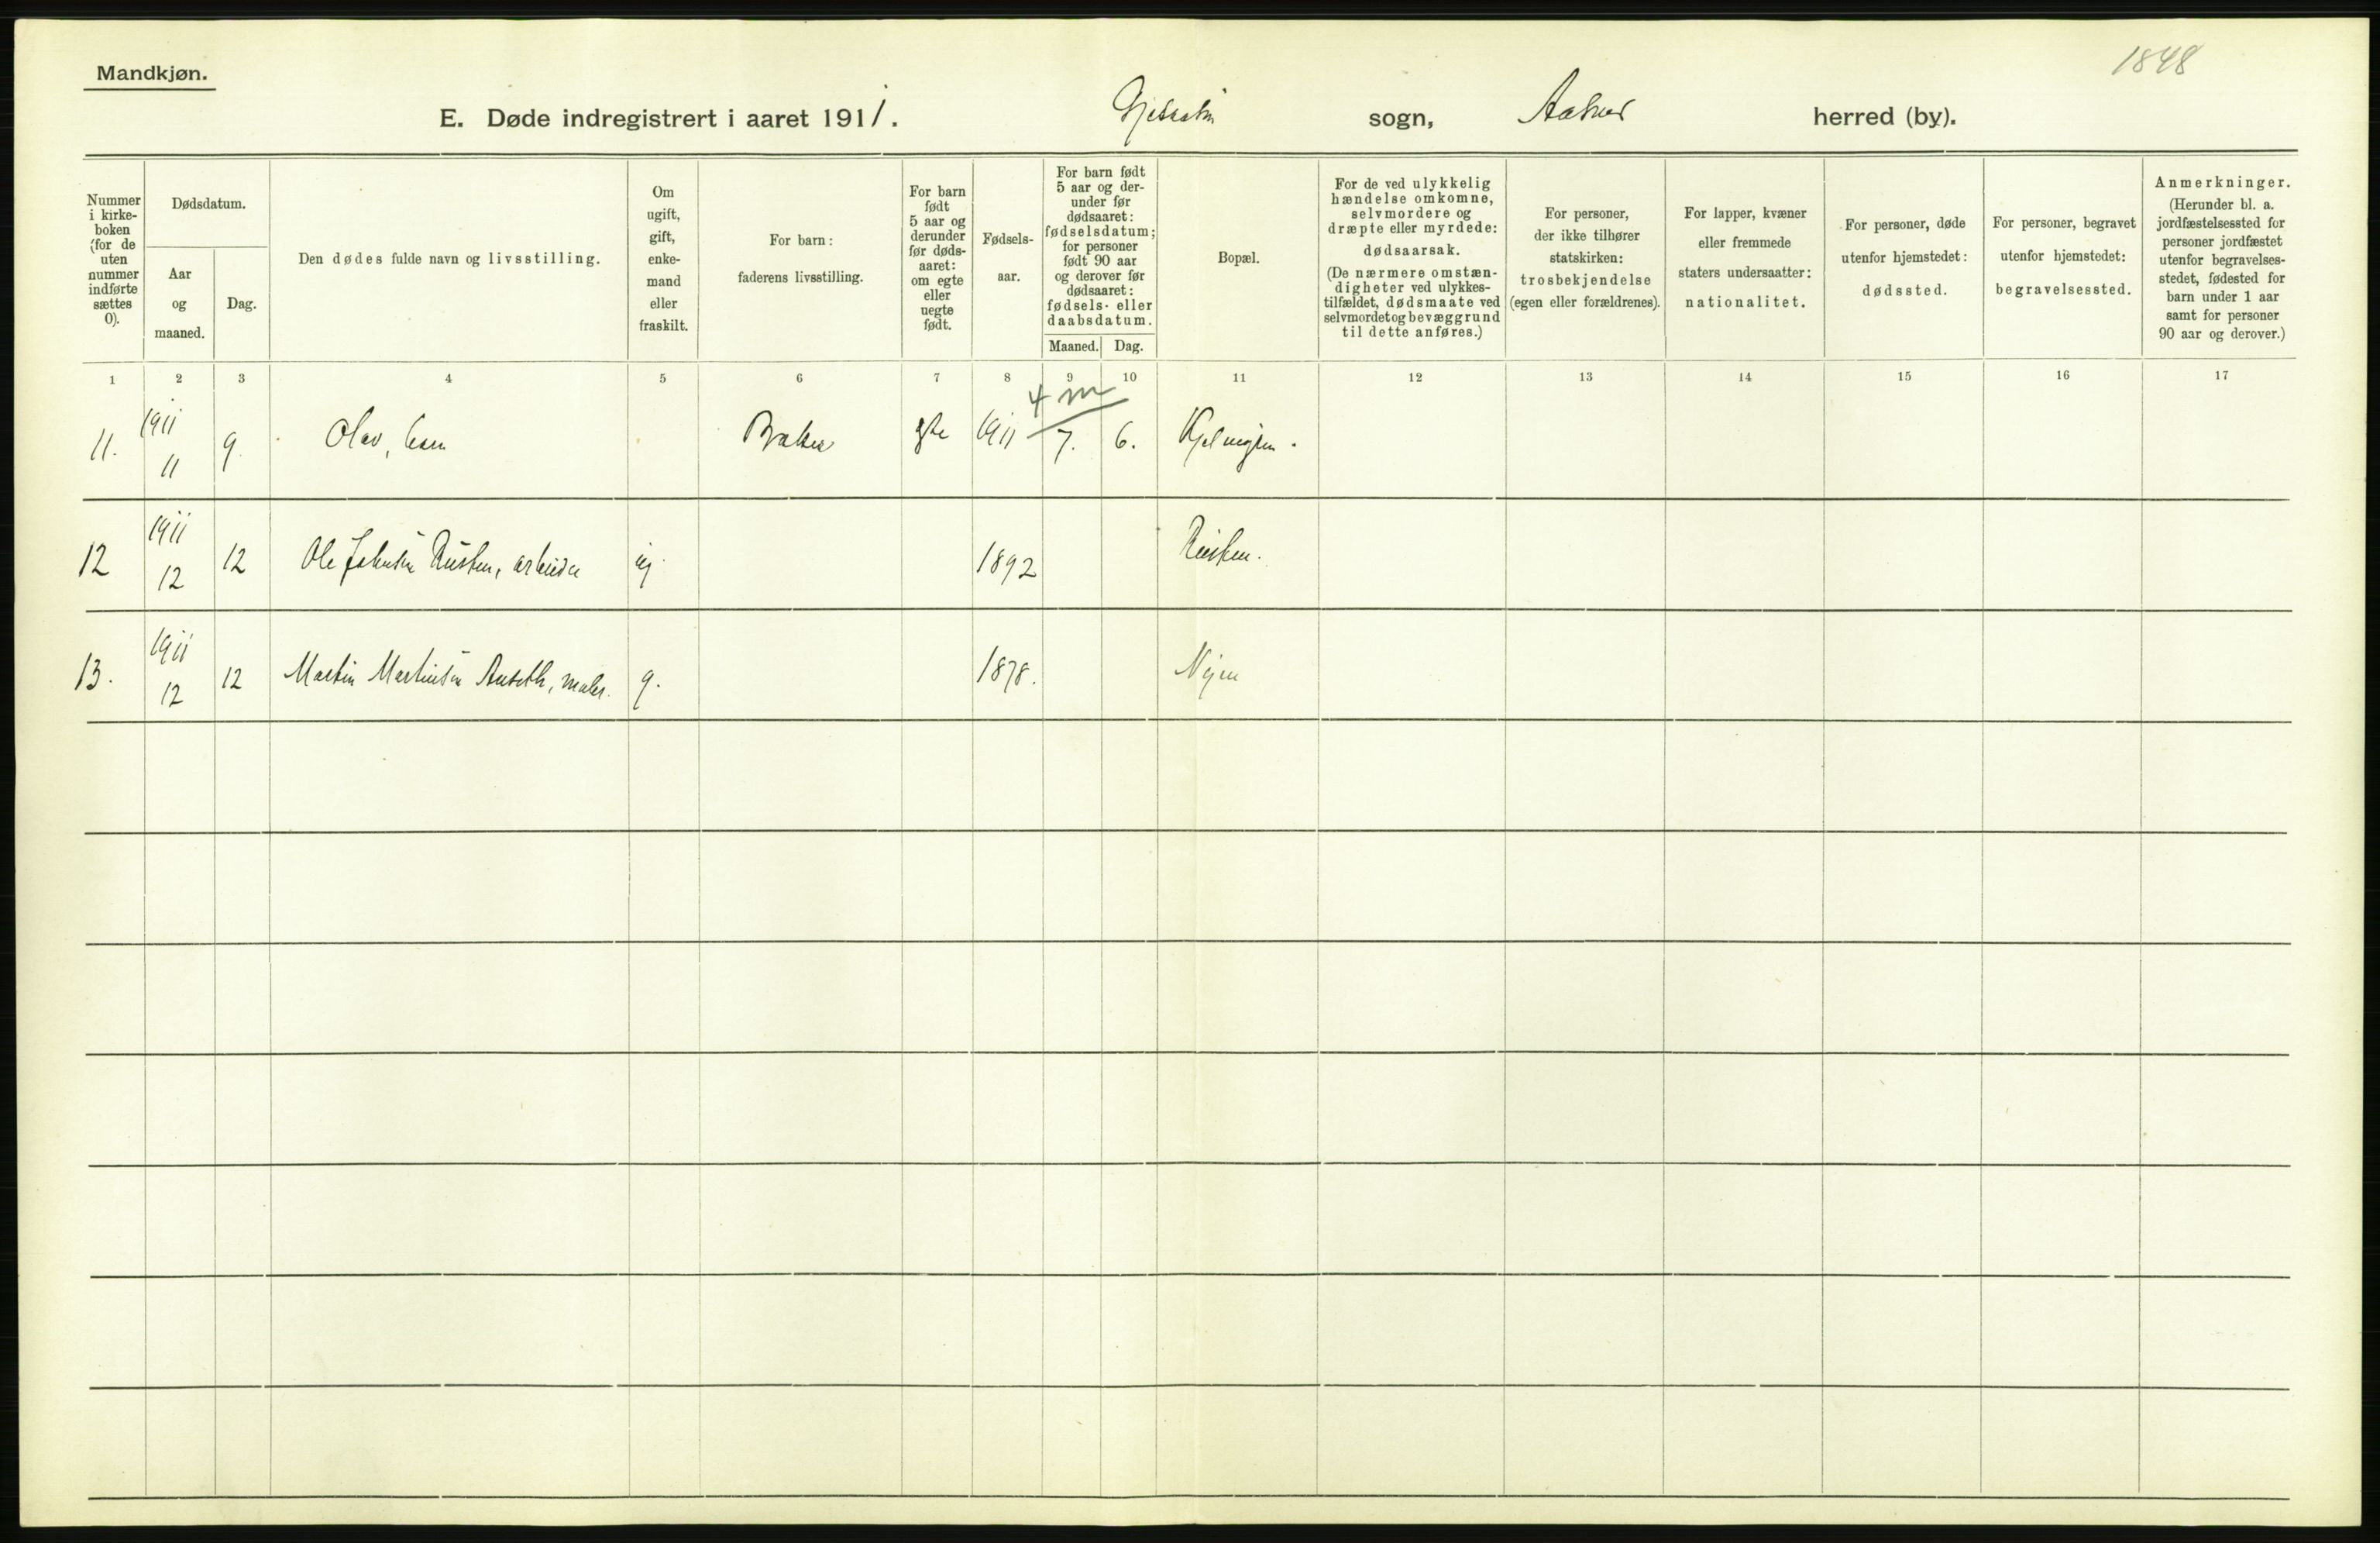 Mandkjøn.
1848
E. Døde indregistrert i aaret 1911. sogn, herred (by).
Nummer
i kirke-
boken
(for de
uten
nummer
indførte
sættes
0).
Dødsdatum.
Aar
og
maaned.
Dag.
Den dødes fulde navn og livsstilling.
Om
ugift,
gift,
enke-
mand
eller
fraskilt.
For barn:
faderens livsstilling.
For barn
født
5 aar og
derunder
før døds-
aaret:
om egte
eller
uegte
født.
Fødsels-
aar.
For barn født
5 aar og der-
under før
dødsaaret:
fødselsdatum;
for personer
født 90 aar
og derover før
dødsaaret:
fødsels- eller
daabsdatum.
Maaned. Dag.
Bopæl.
For de ved ulykkelig
hændelse omkomne,
selvmordere og
dræpte eller myrdede:
dødsaarsak.
(De nærmere omstæn-
digheter ved ulykkes-
tilfældet, dødsmaate ved
selvmordet og bevæggrund
til dette anføres.)
For personer,
der ikke tilhører
statskirken:
trosbekjendelse
(egen eller forældrenes).
For lapper, kvæner
eller fremmede
staters undersaatter:
nationalitet.
For personer, døde
utenfor hjemstedet:
dødssted.
For personer, begravet
utenfor hjemstedet:
begravelsessted.
Anmerkninger.
(Herunder bl. a.
jordfæstelsessted for
personer jordfæstet
utenfor begravelses-
stedet, fødested for
barn under 1 aar
samt for personer
90 aar og derover.)
1 2 3 4 5 6 7 8 9 10 11 12 13 14 15 16 17
4 m
11. 1911 11 9. Olav, barn Baker egte 1911 7. 6.
12 1911 12 12 Ole Johnsen Rusten, arbeider ug. 1892 Rusten.
13. 1911 12 12 Martin Martinsen Auseth, maler. g. 1878. Myen